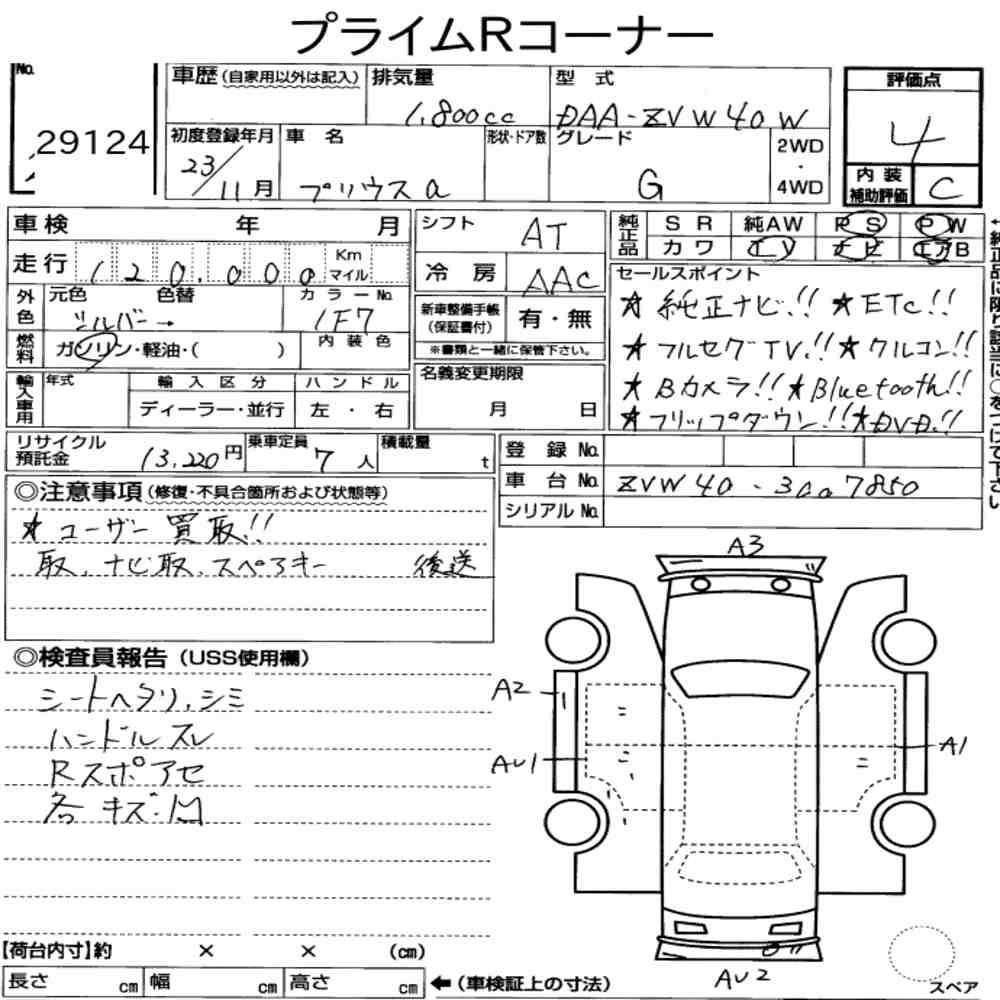 プライムRコーナー
No.
29124
車歴 (自家用以外は記入)
排気量
1,800cc
型 式
DAA-ZVW40W
初度登録年月
23/11月
車 名
プリウスα
形状・ドア数
グレード
G
2WD
・
4WD
評価点
4
内装補助評価
C
車検 年 月
走行 120,000 Km マイル
外色
元色 色替
シルバー→
カラーNo.
1F7
燃料
ガソリン・軽油・( )
内装色
輸入車用
年式
輸入区分
ディーラー・並行
ハンドル
左・右
シフト
AT
冷房
AAC
新車整備手帳
(保証書付)
有・無
※書類と一緒に保管下さい。
名義変更期限
月 日
純正品
SR 純AW PS PW
カワ
セールスポイント
★純正ナビ!! ★ETC!!
★フルセグTV!! ★クルコン!!
★Bカメラ!! ★Bluetooth!!
★フリップダウン!! ★DVD!!
←純正品に限り該当に○をつけて下さい
リサイクル預託金 13,220円
乗車定員 7人
積載量 t
登録No.
車台No. ZVW40-3007850
シリアルNo.
◎注意事項 (修復・不具合箇所および状態等)
★ユーザー買取!!
取、ナビ取、スペアキー 後送
◎検査員報告 (USS使用欄)
シートヘタリ、シミ
ハンドルスレ
Rスポアセ
各キズ・凹
A3
A2
AU1
A1
AU2
スペア
【荷台内寸】約 × × (cm)
長さ cm 幅 cm 高さ cm ←(車検証上の寸法)